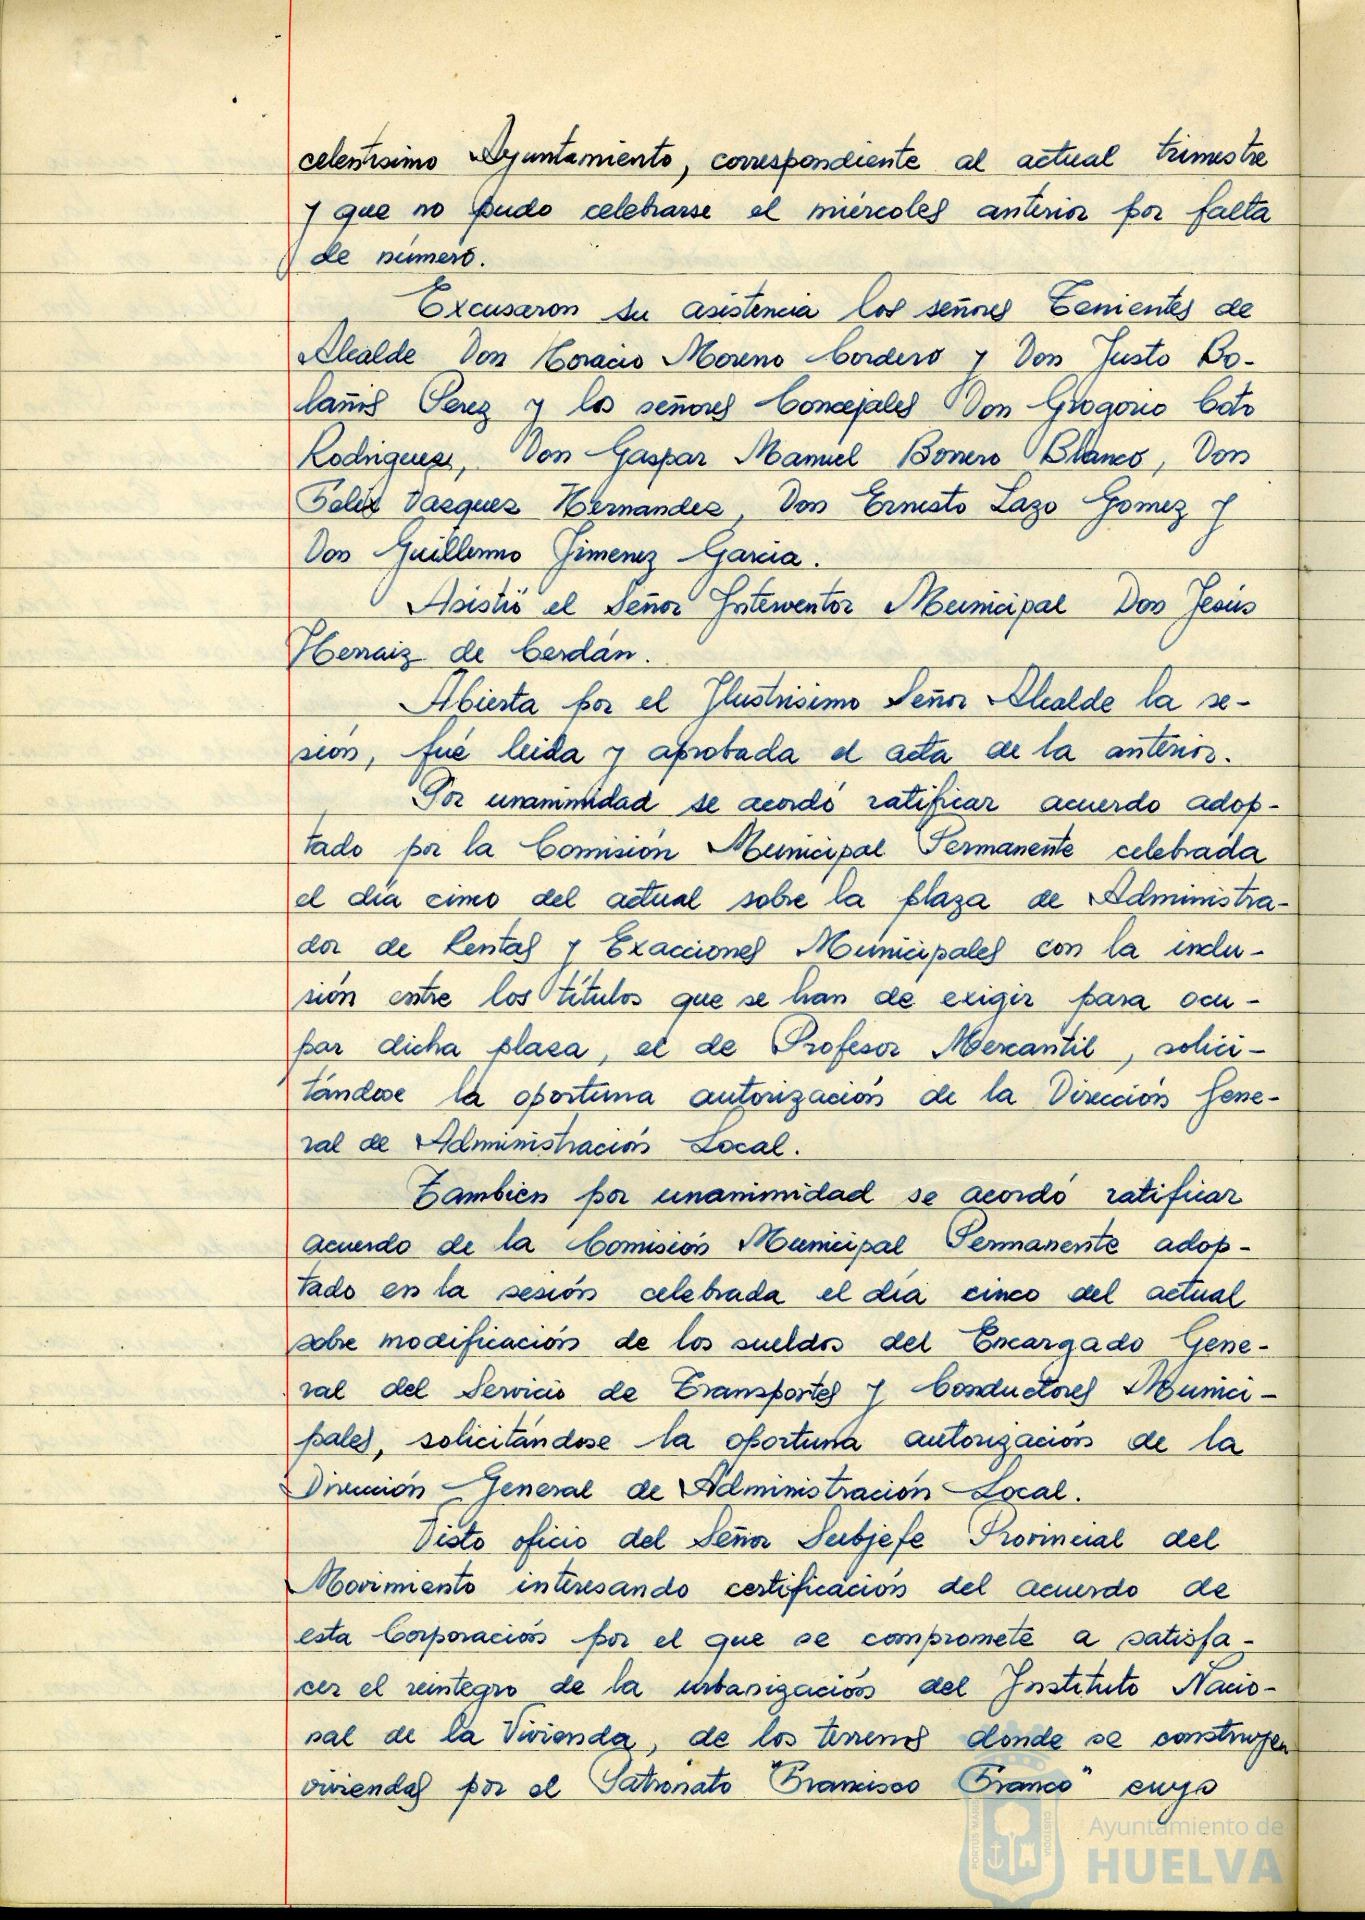 celentisimo Ayuntamiento, correspondiente al actual trimestre
y que no pudo celebrarse el miércoles anterior por falta
de número.
Excusaron su asistencia los señores Tenientes de
Alcalde Don Horacio Moreno Cordero y Don Justo Bo-
laños Perez y los señores Concejales Don Grogorio Coto
Rodriguez, Don Gaspar Manuel Bonero Blanco, Don
Felix Vazquez Hernandez, Don Ernesto Lazo Gomez y
Don Guillermo Jimenez Garcia.
Asistió el Señor Interventor Municipal Don Jesús
Herraiz de Cerdán.
Abierta por el Ilustrisimo Señor Alcalde la se-
sión, fué leida y aprobada el acta de la anterior.
Por unanimidad se acordó ratificar acuerdo adop-
tado por la Comisión Municipal Permanente celebrada
el día cinco del actual sobre la plaza de Administra-
dor de Rentas y Exacciones Municipales con la inclu-
sión entre los títulos que se han de exigir para ocu-
par dicha plaza, el de Profesor Mercantil, solici-
tándose la oportuna autorización de la Dirección Gene-
ral de Administración Local.
Tambien por unanimidad se acordó ratificar
acuerdo de la Comisión Municipal Permanente adop-
tado en la sesión celebrada el día cinco del actual
sobre modificación de los sueldos del Encargado Gene-
ral del Servicio de Transportes y Conductores Munici-
pales, solicitándose la oportuna autorización de la
Dirección General de Administración Local.
Visto oficio del Señor Subjefe Provincial del
Movimiento interesando certificación del acuerdo de
esta Corporación por el que se compromete a satisfa-
cer el reintegro de la urbanización del Instituto Nacio-
nal de la Vivienda, de los terrenos donde se construyen
viviendas por el Patronato "Francisco Franco" cuyo
PORTUS MARIS
CUSTODIA
Ayuntamiento de
HUELVA